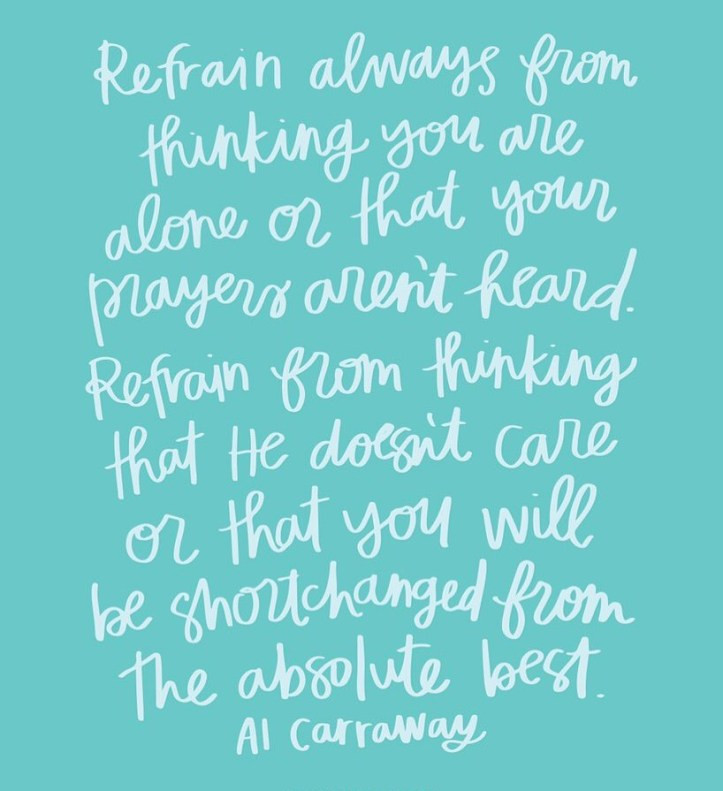 Refrain always from
thinking you are
alone or that your
prayers aren't heard.
Refrain from thinking
that He doesn't care
or that you will
be shortchanged from
the absolute best.
Al Carraway